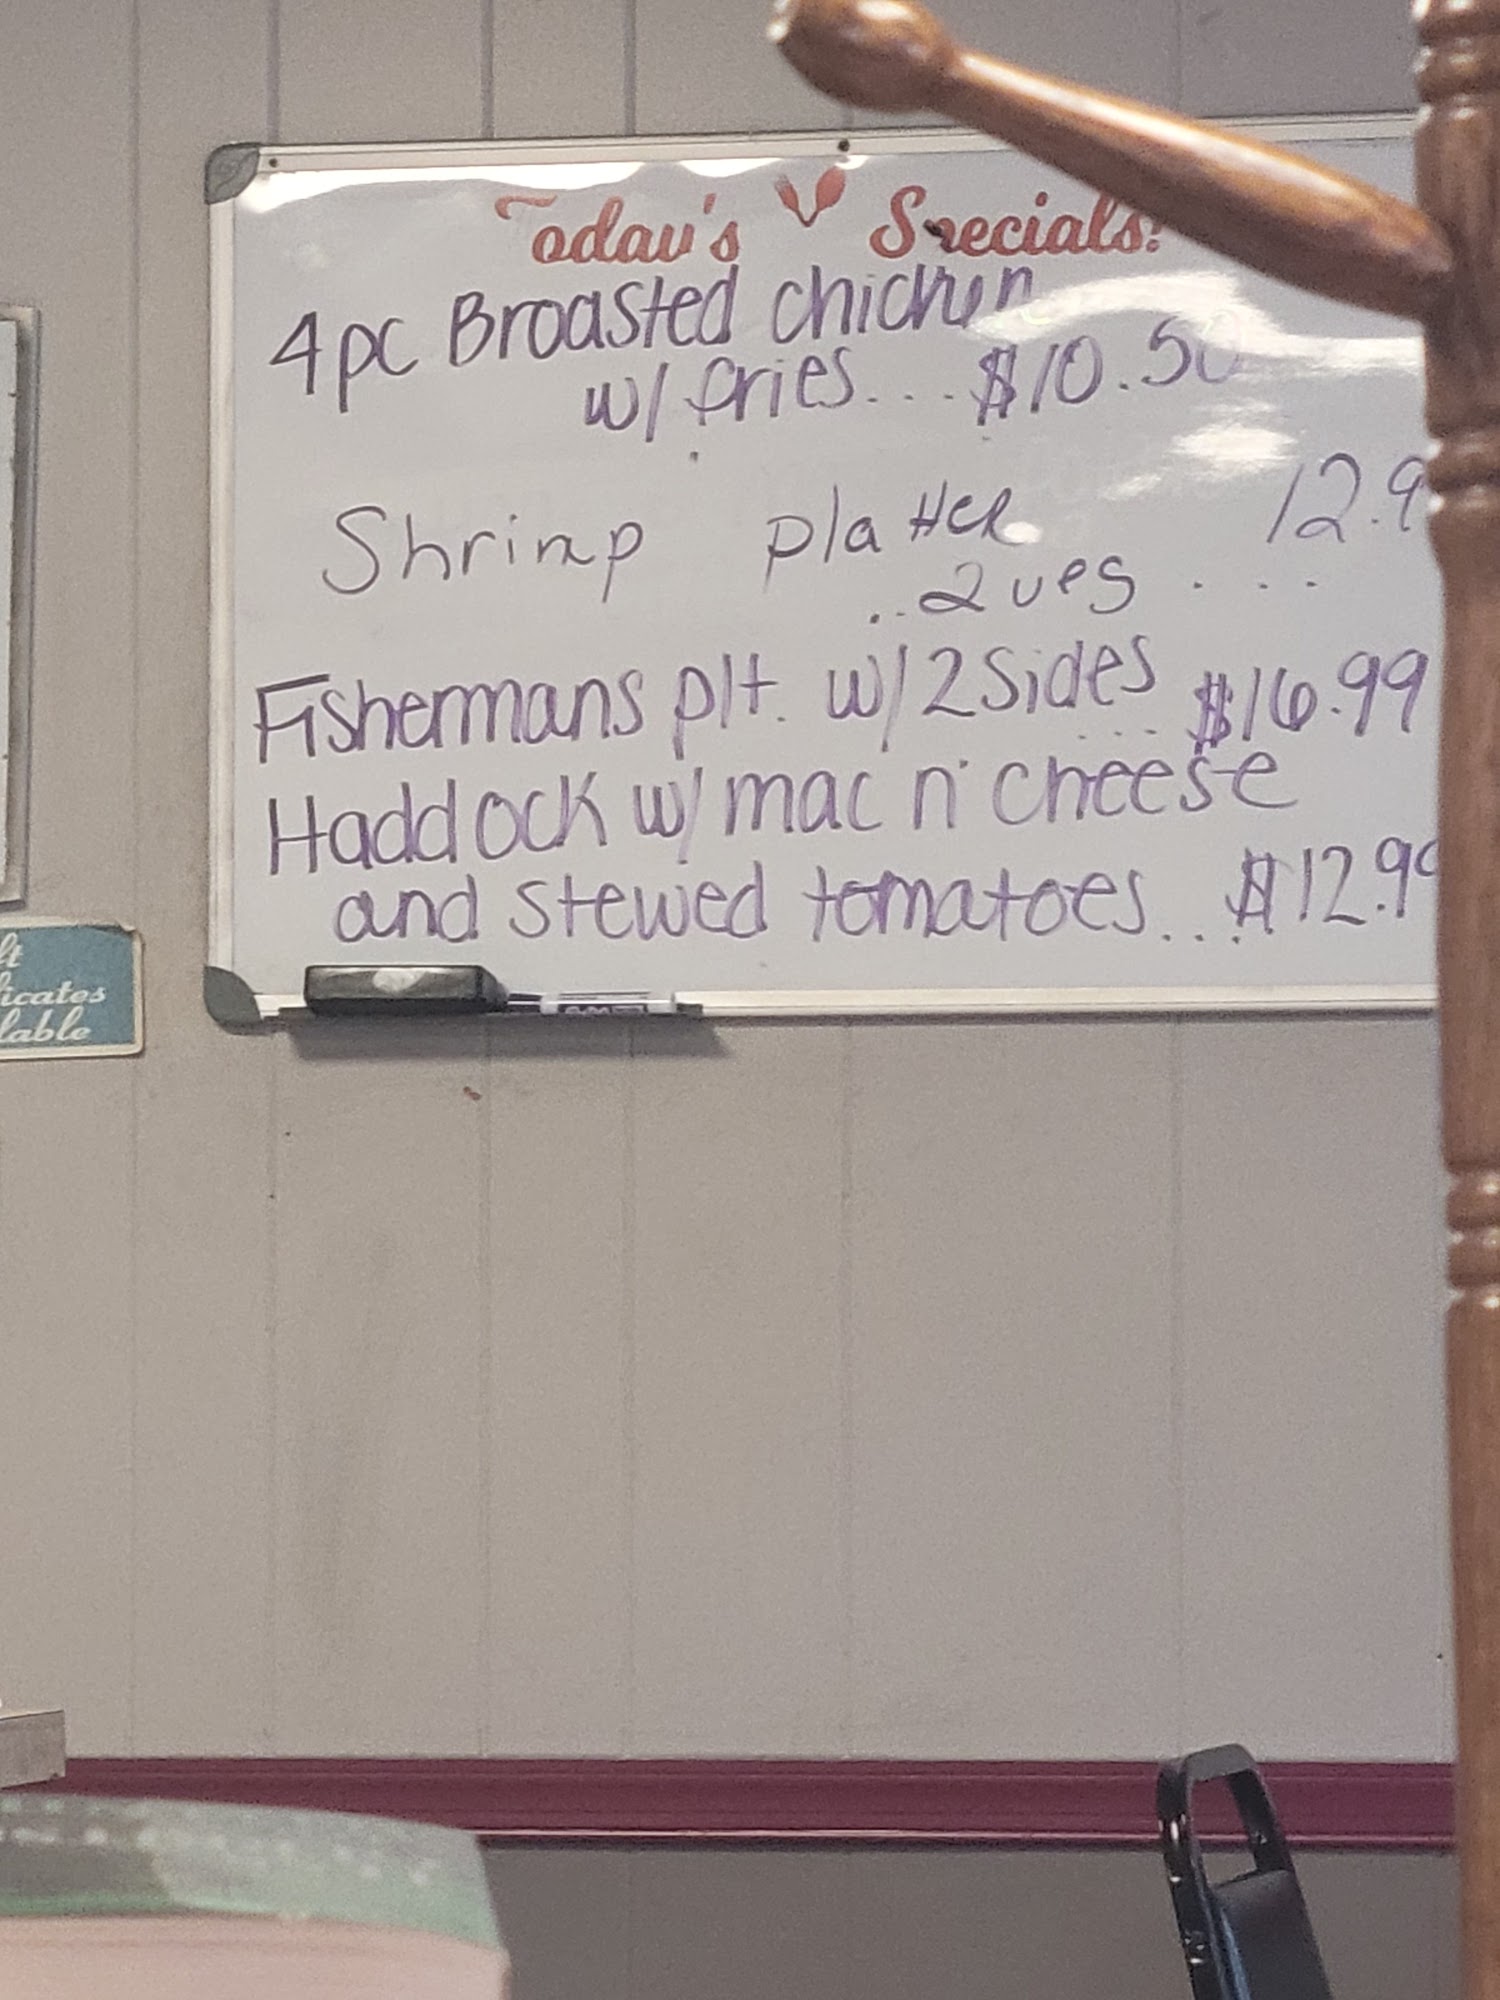 Today's Specials!
4pc Broasted chicken
w/ fries.... $10.50
Shrimp platter 12.9
..2 veg ....
Fishermans plt. w/ 2 sides ... $16.99
Haddock w/ mac n' cheese
and stewed tomatoes... $12.99
ft
icates
lable